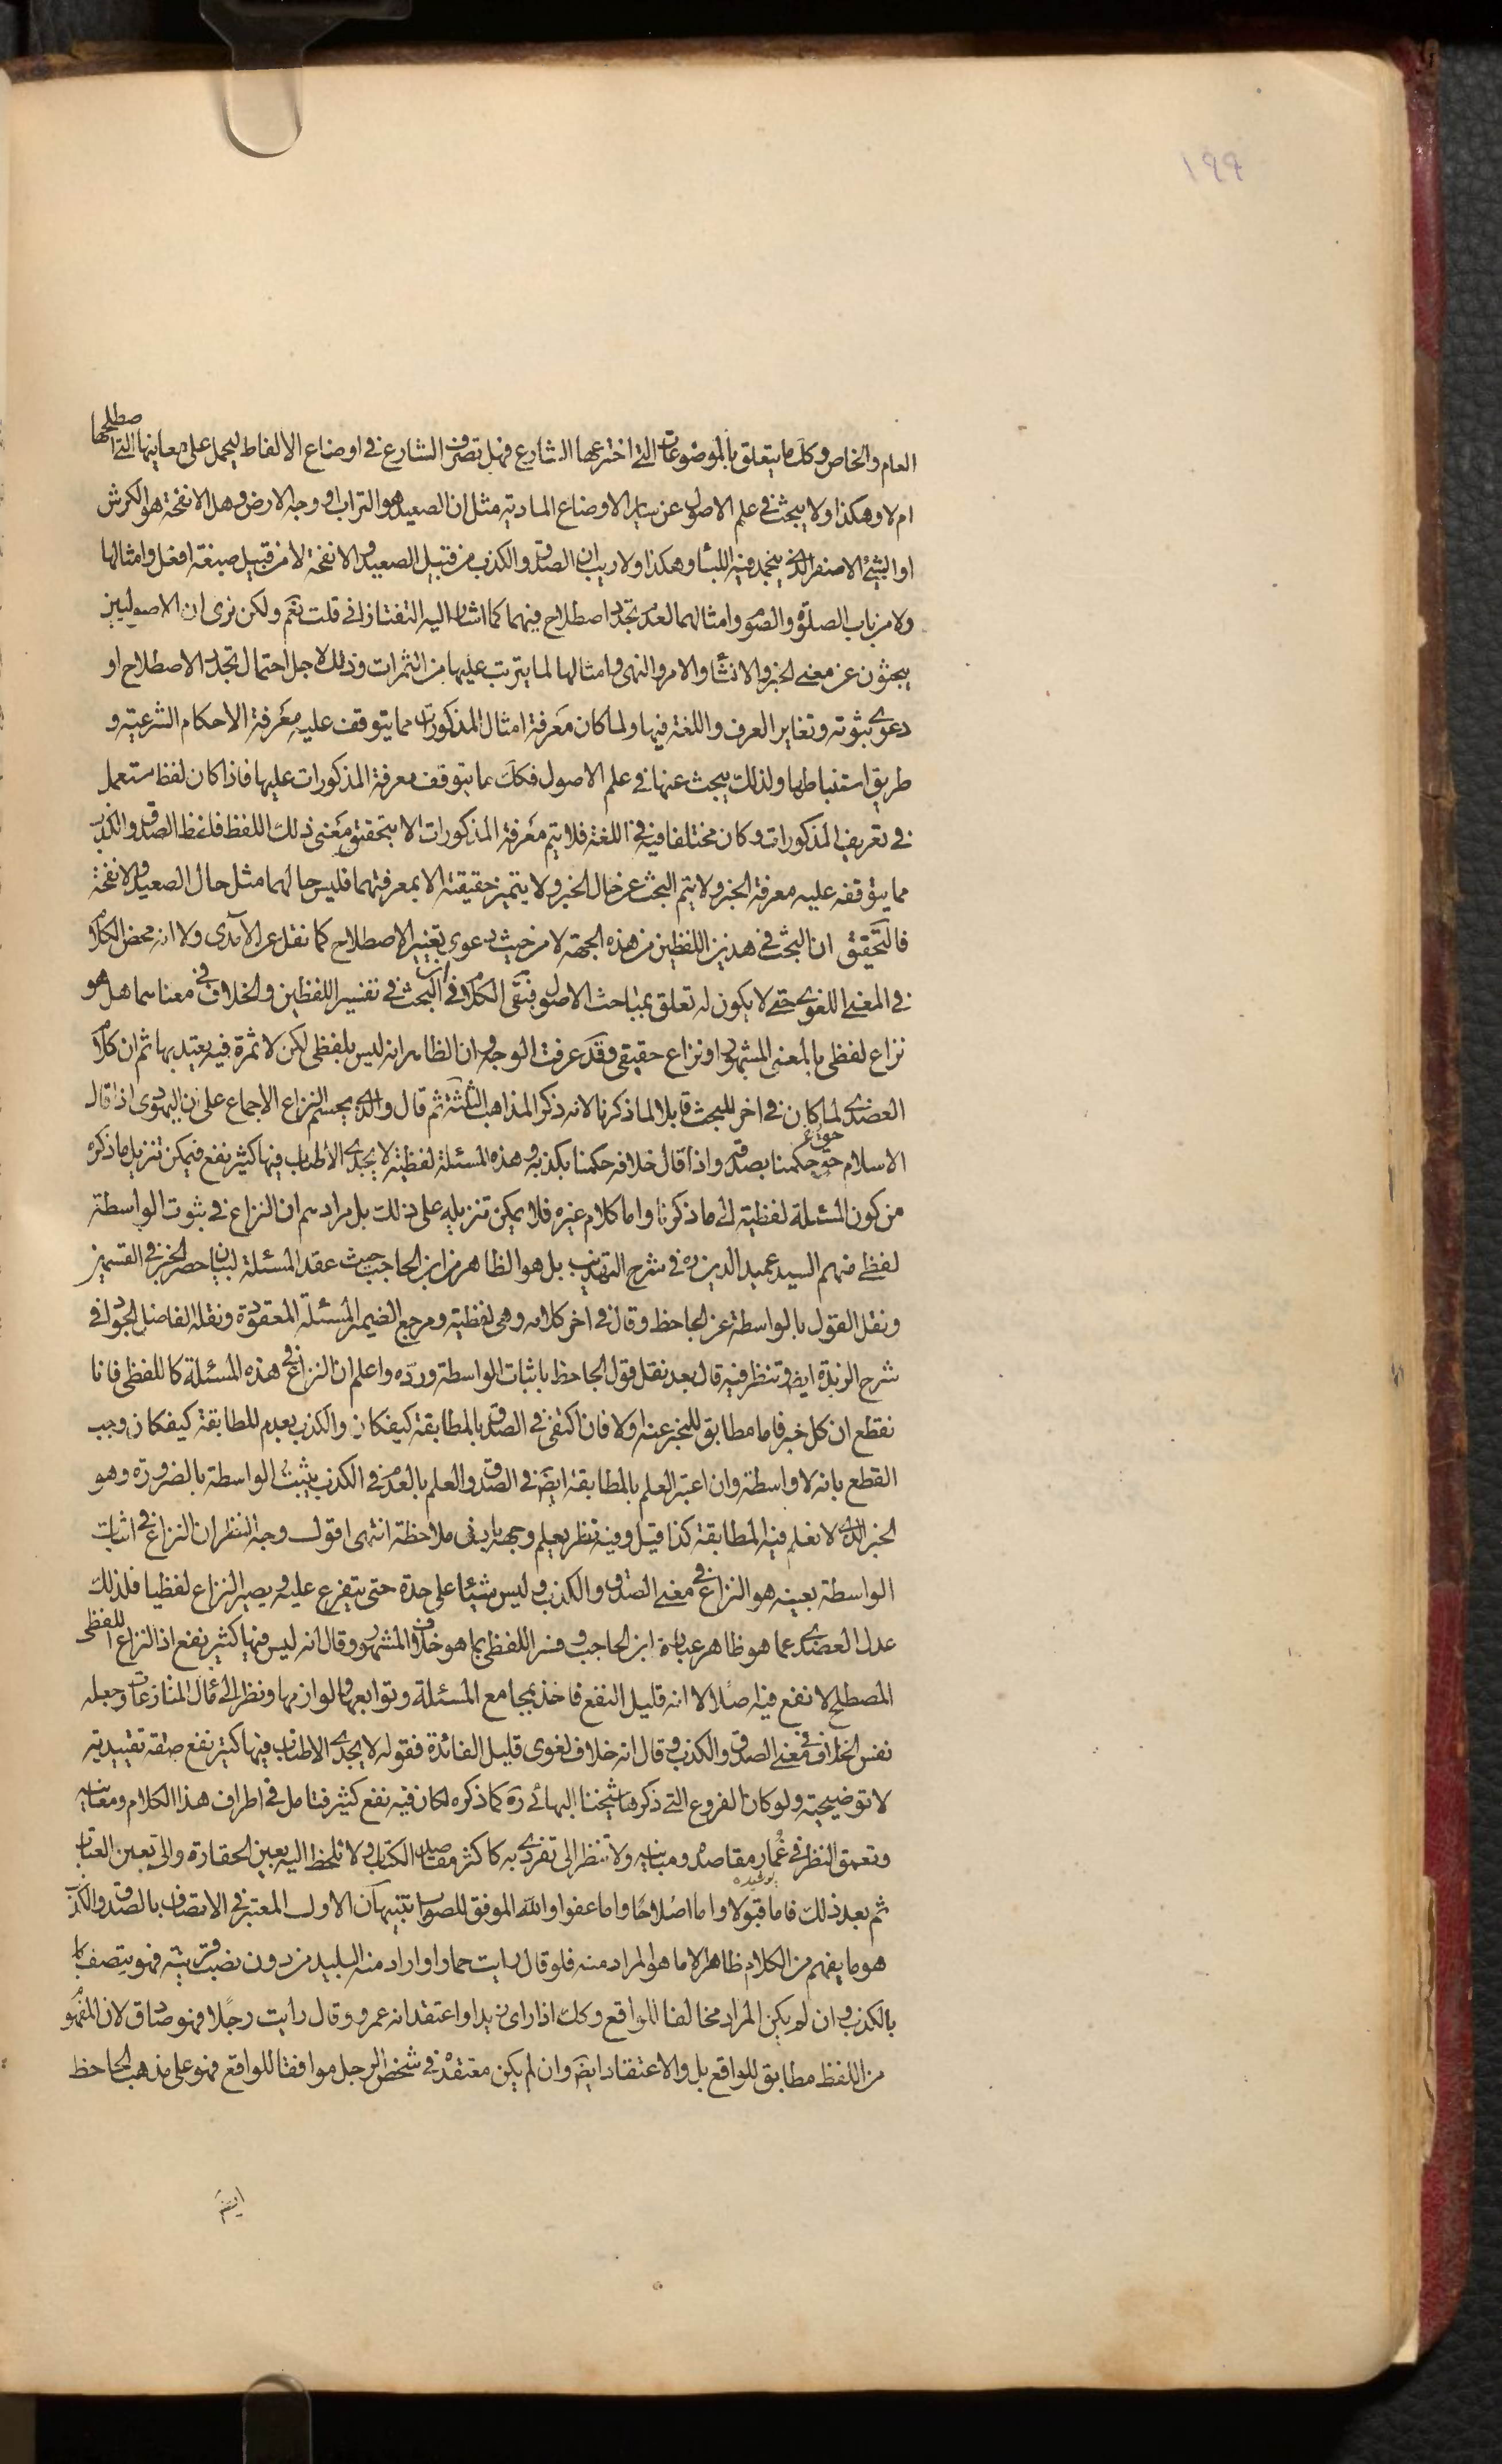 ۱۹۹
العام والخاص وكك ما يتعلق بالموضوعات التي اخترعها الشارع فهل تصرف الشارع في اوضاع الالفاظ ليحمل على معاينها التي اصطلحها
ام لا وهكذا ولا يبحث في علم الاصول عن ساير الاوضاع المادية مثل ان الصعيد هو التراب او وجه الارض وهل الانفحة هو الكرش
او الشيء الاصفر الذي ينجمد فيه اللبنا وهكذا ولا ريب ان الصدق والكذب من قبيل الصعيد والانفحة لا من قبيل صيغة افعل وامثالها
ولا من باب الصلوة والصوم وامثالهما لعدم تجدد اصطلاح فيهما كما اشار اليه التفتازاني قلت نعم ولكن نرى ان الاصوليين
يبحثون عن معنى الخبر والانشاء والامر والنهي وامثالها لما يترتب عليها من الثمرات وذلك لاجل احتمال تجدد الاصطلاح او
دعوى ثبوته وتغاير العرف واللغة فيها ولما كان معرفة امثال المذكورات مما يتوقف عليه معرفة الاحكام الشرعية و
طريق استنباطها ولذلك يبحث عنها في علم الاصول فكك ما يتوقف معرفة المذكورات عليها فاذا كان لفظ مستعمل
في تعريف المذكورات وكان مختلفا فيه في اللغة فلا يتم معرفة المذكورات الا بتحقيق معنى ذلك اللفظ فلفظ الصدق والكذب
مما يتوقفه عليه معرفة الخبر ولا يتم البحث عن حال الخبر ولا يتميز حقيقته الا بمعرفتهما فليس حالهما مثل حال الصعيد والانفحة
فالتحقيق ان البحث في هذين اللفظين من هذه الجهة لا من حيث دعوى تغيير الاصطلاح كما نقل عن الآمدي ولا انه محض الكلام
في المعنى اللغوي حتى لا يكون له تعلق بمباحث الاصول فبقى الكلام في ان البحث في تفسير اللفظين والخلاف في معناهما هل هو
نزاع لفظي بالمعنى المشهور او نزاع حقيقي وقد عرفت الوجه وان الظاهر انه ليس بلفظي لكن لا ثمرة فيه يعتد بها ثم ان كلام
العضدي لما كان في اخر المبحث قابلا لما ذكرنا لانه ذكر المذاهب الثلثة ثم قال والذي يحسم النزاع الاجماع على ان اليهودي اذا قال
الاسلام حق حكمنا بصدقه واذا قال خلافه حكمنا بكذبه وهذه المسئلة لفظية لا يجدي الاطناب فيها كثير نفع فيمكن تنزيل ما ذكره
من كون المسئلة لفظية الى ما ذكرنا واما كلام غيره فلا يمكن تنزيله على ذلك بل مرادهم ان النزاع في ثبوت الواسطة
لفظي منهم السيد عميد الدين ره في شرح التهذيب بل هو الظاهر من ابن الحاجب حيث عقد المسئلة لبيان حصر الخبر في القسمين
ونقل القول بالواسطة عن الجاحظ وقال في اخر كلامه وهي لفظية ومرجع الضمير المسئلة المعقودة ونقله الفاضل الجواد في
شرح الزبدة ايض وتنظر فيه قال بعد نقل قول الجاحظ باثبات الواسطة ورده واعلم ان النزاع في هذه المسئلة كاللفظي فانا
نقطع ان كل خبر فاما مطابق للمخبر عنه اولا فان اكتفى في الصدق بالمطابقة كيفكان والكذب بعدم المطابقة كيفكان وجب
القطع بانه لا واسطة وان اعتبر العلم بالمطابقة ايض في الصدق والعلم بالعدم في الكذب يثبت الواسطة بالضرورة وهو
الخبر الذي لا نعلم فيه المطابقة كذا قيل وفيه نظر يعلم وجهه بادنى ملاحظة انتهى اقول وجه النظر ان النزاع في اثبات
الواسطة بعينه هو النزاع في معنى الصدق والكذب وليس شيئا على حدة حتى يتفرع عليه ويصير النزاع لفظيا فلذلك
عدل العضدي عما هو ظاهر عبارة ابن الحاجب وفسر اللفظي بما هو خلاف المشهور وقال انه ليس فيها كثير نفع اذ النزاع اللفظي
المصطلح لا نفع فيه اصلا لا انه قليل النفع فاخذ بمجامع المسئلة وتوابعها ولوازمها ونظر الى مآل المنازعات وجعله
نفس الخلاف في معنى الصدق والكذب وقال انه خلاف لغوي قليل الفائدة فقوله لا يجدي الاطناب فيها كثير نفع صفة تقييدية
لا توضيحية ولو كان الفروع التي ذكرها شيخنا البهائي ره كما ذكره لكان فيه نفع كثير فتامل في اطراف هذا الكلام ومعانيه
وتعمق النظر في غمار مقاصده ومبانيه ولا تنظر الى تفردي به كاكثر مقاصد الكتاب ولا تلحظ اليه بعين الحقارة والى بعين العتاب
ثم بعد ذلك فاما قبولا واما اصلاحا واما عفوا والله الموفق للصواب تنبيهان الاول المعتبر في الاتصاف بالصدق والكذب
هو ما يفهم من الكلام ظاهرا لا ما هو المراد منه فلو قال رايت حمارا واراد منه البليد من دون نصب قرينة فهو يتصف
بالكذب وان لم يكن المراد مخالفا للواقع وكك اذا راى زيدا واعتقد انه عمرو وقال رايت رجلا فهو صادق لان المفهوم
من اللفظ مطابق للواقع بل والاعتقاد ايض وان لم يكن معتقده في شخص الرجل موافقا للواقع فهو على مذهب الجاحظ
ايض